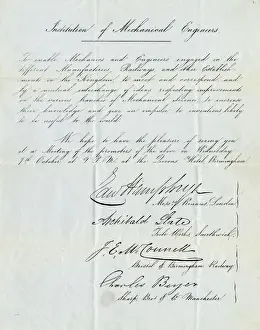 Institution of Mechanical Engineers
To enable Mechanics and Engineers engaged in the
different Manufactories, Railways and other Establish-
ments in the Kingdom, to meet and correspond and
by a mutual interchange of ideas respecting improvements
in the various branches of Mechanical Science to increase
their knowledge and give an impulse to inventions likely
to be useful to the world.
We hope to have the pleasure of seeing you
at a Meeting of the promoters of the above on Wednesday
7th October at 2 P.M. at the Queens Hotel Birmingham
Edw Humphrys
Messrs Rennies London
Archibald Slate
Works, Smethwick
J. E. McConnell
Bristol & Birmingham Railway
Charles Beyer
Sharp Bros & Co Manchester